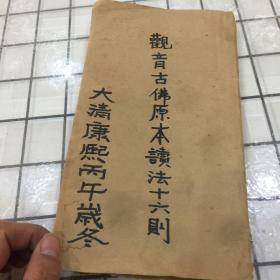 觀音古佛原本讀法十六則
大清康熙丙午歲冬